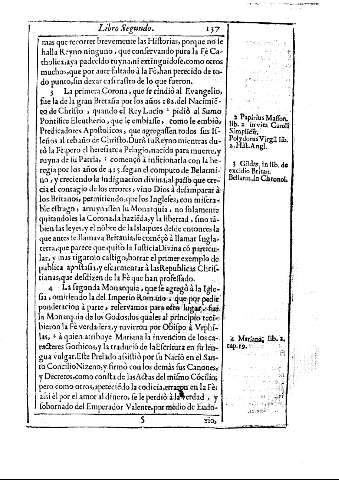 Libro Segundo. 137
mas que recorrer brevemente las Historias, porque no le
halla Reyno ninguno, que conservando pura la Fè Ca-
tholica, aya padecido ruyna: ni extinguidose, como otros
muchos, que por aver faltado à la Fè, han perecido de to-
do punto, sin dexar casi rastro de lo que fueron.
3 La primera Corona, que se rindiò al Evangelio,
fue la de la gran Bretaña por los años 182. del Nacimiẽ-
to de Christo, quando el Rey Lucio ² pidiò al Sumo
Pontifice Eleutherio, que le embiasse, como le embiò,
Predicadores Apostolicos, que agregassen todos sus Is-
leños al rebaño de Christo. Durò tu Reyno mientras du-
rò la Fè; pero el heresiarca Pelagio, nacido para muerte, y
ruyna de su Patria, ³ començò à inficionarla con la he-
regia por los años de 425. segun el computo de Belarmi-
no, y creciendo la indignacion divina, al passo que cre-
cia el contagio de los errores, vino Dios à desamparar à
los Britanos, permitiendo, que los Ingleses, con misera-
ble estrago, arruynassen la Monarquia, no solamente
quitandoles la Corona, la hazienda, y la libertad, sino tã-
bien las leyes, y el nõbre de la Isla; pues desde entonces la
que antes se llamava Britania, se començò à llamar Ingla-
terra, que parece que quiso la Justicia Divina cõ particu-
lar, y mas riguroso castigo, borrar el primer exemplo de
publica apostasia, y escarmentar à las Republicas Chris-
tianas, que desdizen de la Fè que han professado.
4 La segunda Monarquia, que se agregò à la Igle-
sia, omitiendo la del Imperio Romano, que por pedir
ponderacion à parte, reservamos para otro lugar, fue
la Monarquia de los Godos, los quales al principio reci-
bieron la Fè verdadera, y tuvieron por Obispo à Vrphi-
las, ⁴ à quien atribuye Mariana la invencion de los ca-
racteres Gothicos, y la traduciõ de la Escritura en su len-
gua vulgar. Este Prelado assistiò por su Naciõ en el San-
to Concilio Nizeno, y firmò con los demàs sus Canones,
y Decretos, como consta de las Actas del mismo Cõcilio;
pero como otros, apeteciẽdo la codicia, erraron en la Fè:
assi èl por el amor al dinero, se le perdiò à la verdad, y
sobornado del Emperador Valente, por medio de Eudo-
S
xio,
2 Papirius Masson.
lib. 2. in vita Caroli
Simplicis,
Polydorus Virgil. lib.
2. Hist. Angl.
3 Gildas, in lib. de
excidio Britan.
Bellarm. in Chronol.
4 Mariana, lib. 2.
cap. 19.